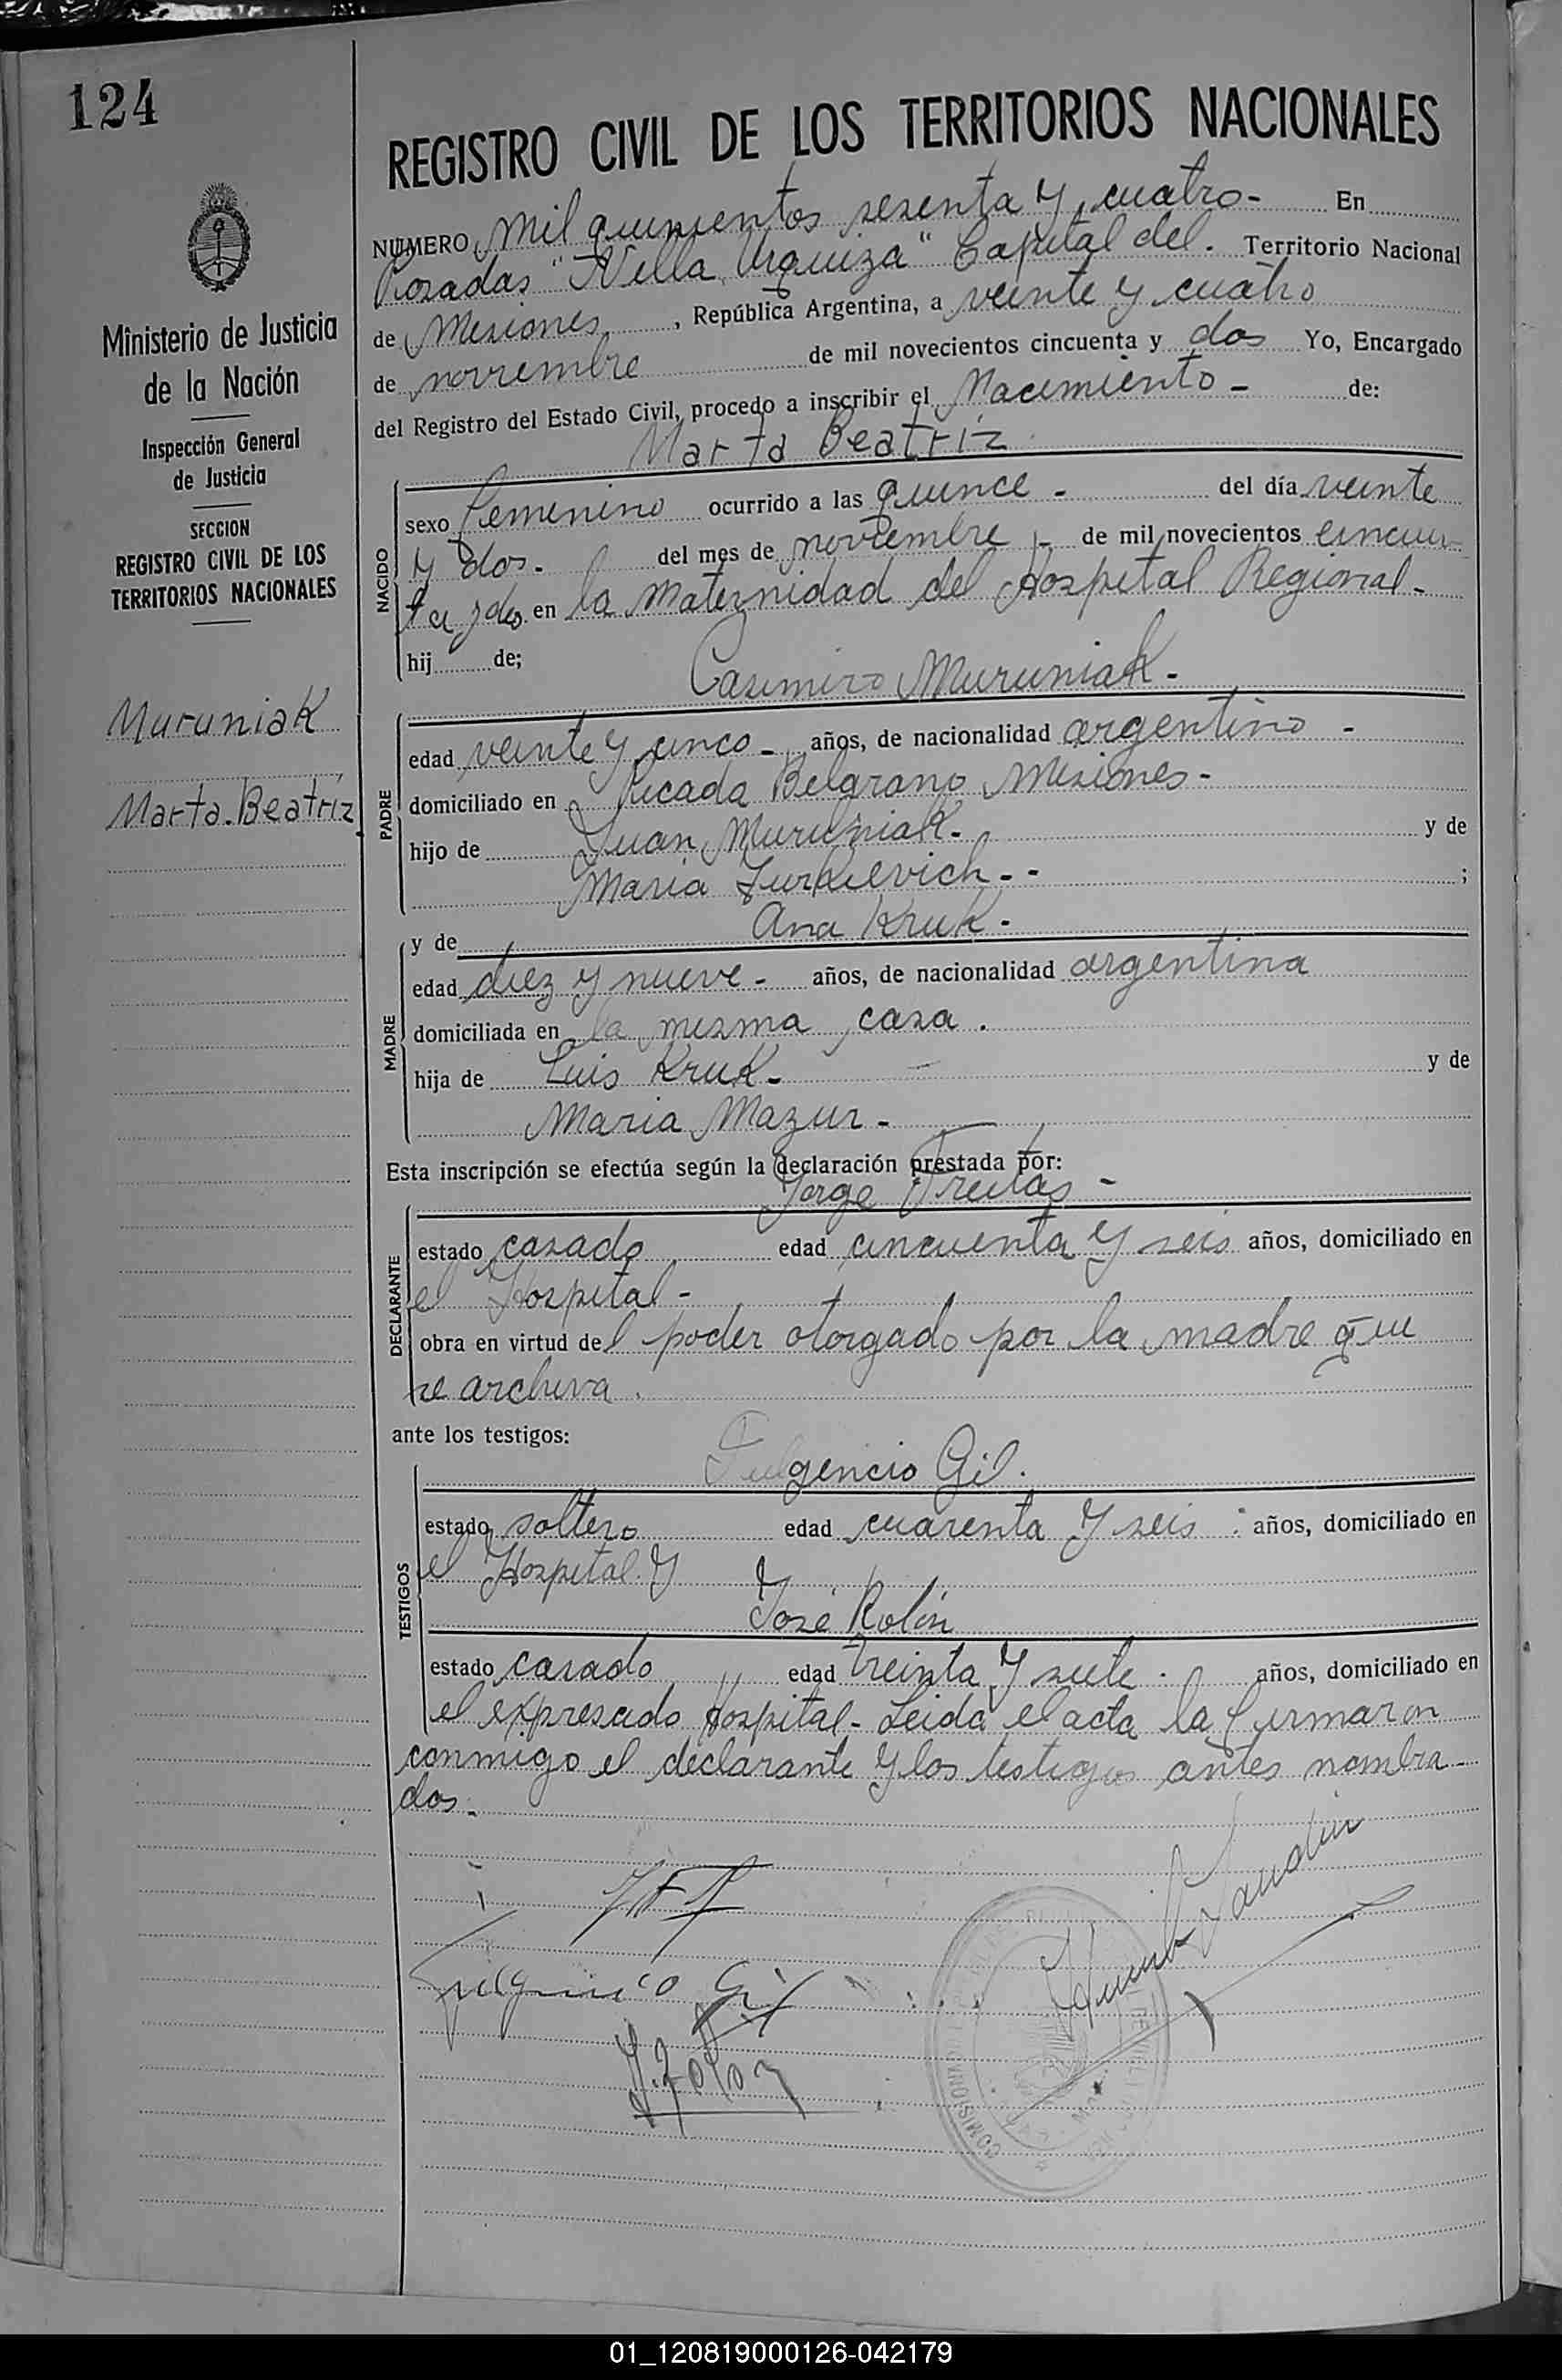 124
REGISTRO CIVIL DE LOS TERRITORIOS NACIONALES
NUMERO mil quinientos sesenta y cuatro- En
Posadas "Villa Urquiza" Capital del. Territorio Nacional
de Misiones, República Argentina, a veinte y cuatro
de noviembre de mil novecientos cincuenta y dos Yo, Encargado
del Registro del Estado Civil, procedo a inscribir el Nacimiento - de:
Marta Beatríz
Ministerio de Justicia
de la Nación
Inspección General
de Justicia
SECCION
REGISTRO CIVIL DE LOS
TERRITORIOS NACIONALES
Muruniak
Marta Beatríz
NACIDO
sexo femenino ocurrido a las quince - del día veinte
y dos. del mes de noviembre - de mil novecientos cincuen
ta y dos en la Maternidad del Hospital Regional-
hij de;
Casimiro Muruniak-
PADRE
edad veinte y cinco - años, de nacionalidad argentino -
domiciliado en Picada Belgrano Misiones-
hijo de Juan Muruniak- y de
Maria Jurkievich-- ;
y de Ana Kruk-
MADRE
edad diez y nueve- años, de nacionalidad argentina
domiciliada en la misma casa.
hija de Luis Kruk- y de
Maria Mazur-
Esta inscripción se efectúa según la declaración prestada por:
Jorge Freitas -
DECLARANTE
estado casado edad cincuenta y seis años, domiciliado en
el Hospital-
obra en virtud del poder otorgado por la madre que
se archiva.
ante los testigos:
Fulgencio Gil.
TESTIGOS
estado soltero edad cuarenta y seis años, domiciliado en
el Hospital. y
José Rolón
estado casado edad treinta y siete. años, domiciliado en
el expresado Hospital- Leida el acta la firmaron
conmigo el declarante y los testigos antes nombra
dos.
Fulgencio Gil
J. Rolon
01_120819000126-042179